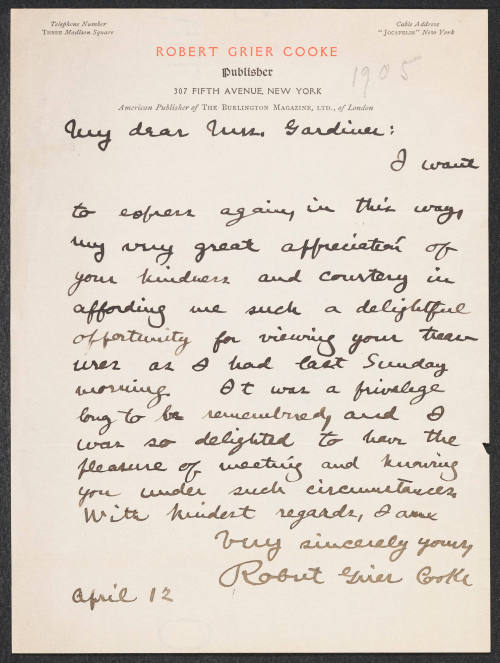 Telephone Number
THREE Madison Square
Cable Address
"JOCAFELIS" New York
ROBERT GRIER COOKE
Publisher
307 FIFTH AVENUE, NEW YORK
1905
American Publisher of THE BURLINGTON MAGAZINE, LTD., of London
My dear Mrs. Gardiner:
I want
to express again, in this way,
my very great appreciation of
your kindness and courtesy in
affording me such a delightful
opportunity for viewing your treas-
ures as I had last Sunday
morning. It was a privelege
long to be remembered, and I
was so delighted to have the
pleasure of meeting and knowing
you under such circumstances.
With kindest regards, I am
Very sincerely yours,
Robert Grier Cooke
April 12